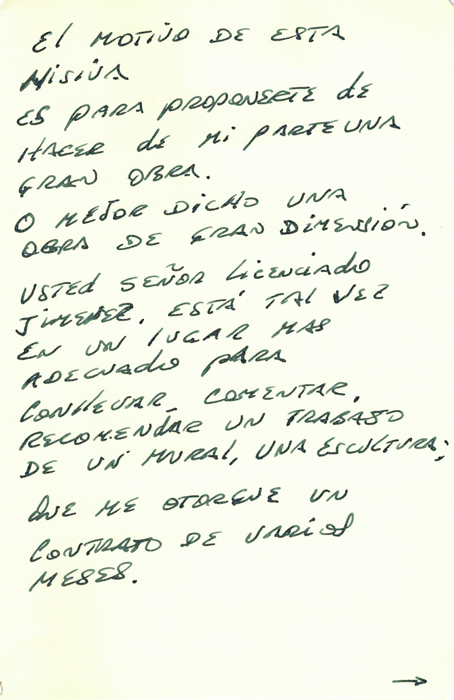 El MOTIVO DE ESTA
MISIVA
ES PARA PROPONERTE de
HACER de Mi PARTE UNA
GRAN OBRA.
O MEJOR DICHO UNA
OBRA DE GRAN DIMENSIÓN.
USTED SEÑOR LICENCIADO
JIMENEZ. ESTÁ TAL VEZ
EN UN LUGAR MAS
ADECUADO PARA
CONLLEVAR, COMENTAR,
RECOMENDAR UN TRABAJO
DE UN MURAL, UNA ESCULTURA;
QUE ME OTORGUE UN
CONTRATO DE VARIOS
MESES.
→